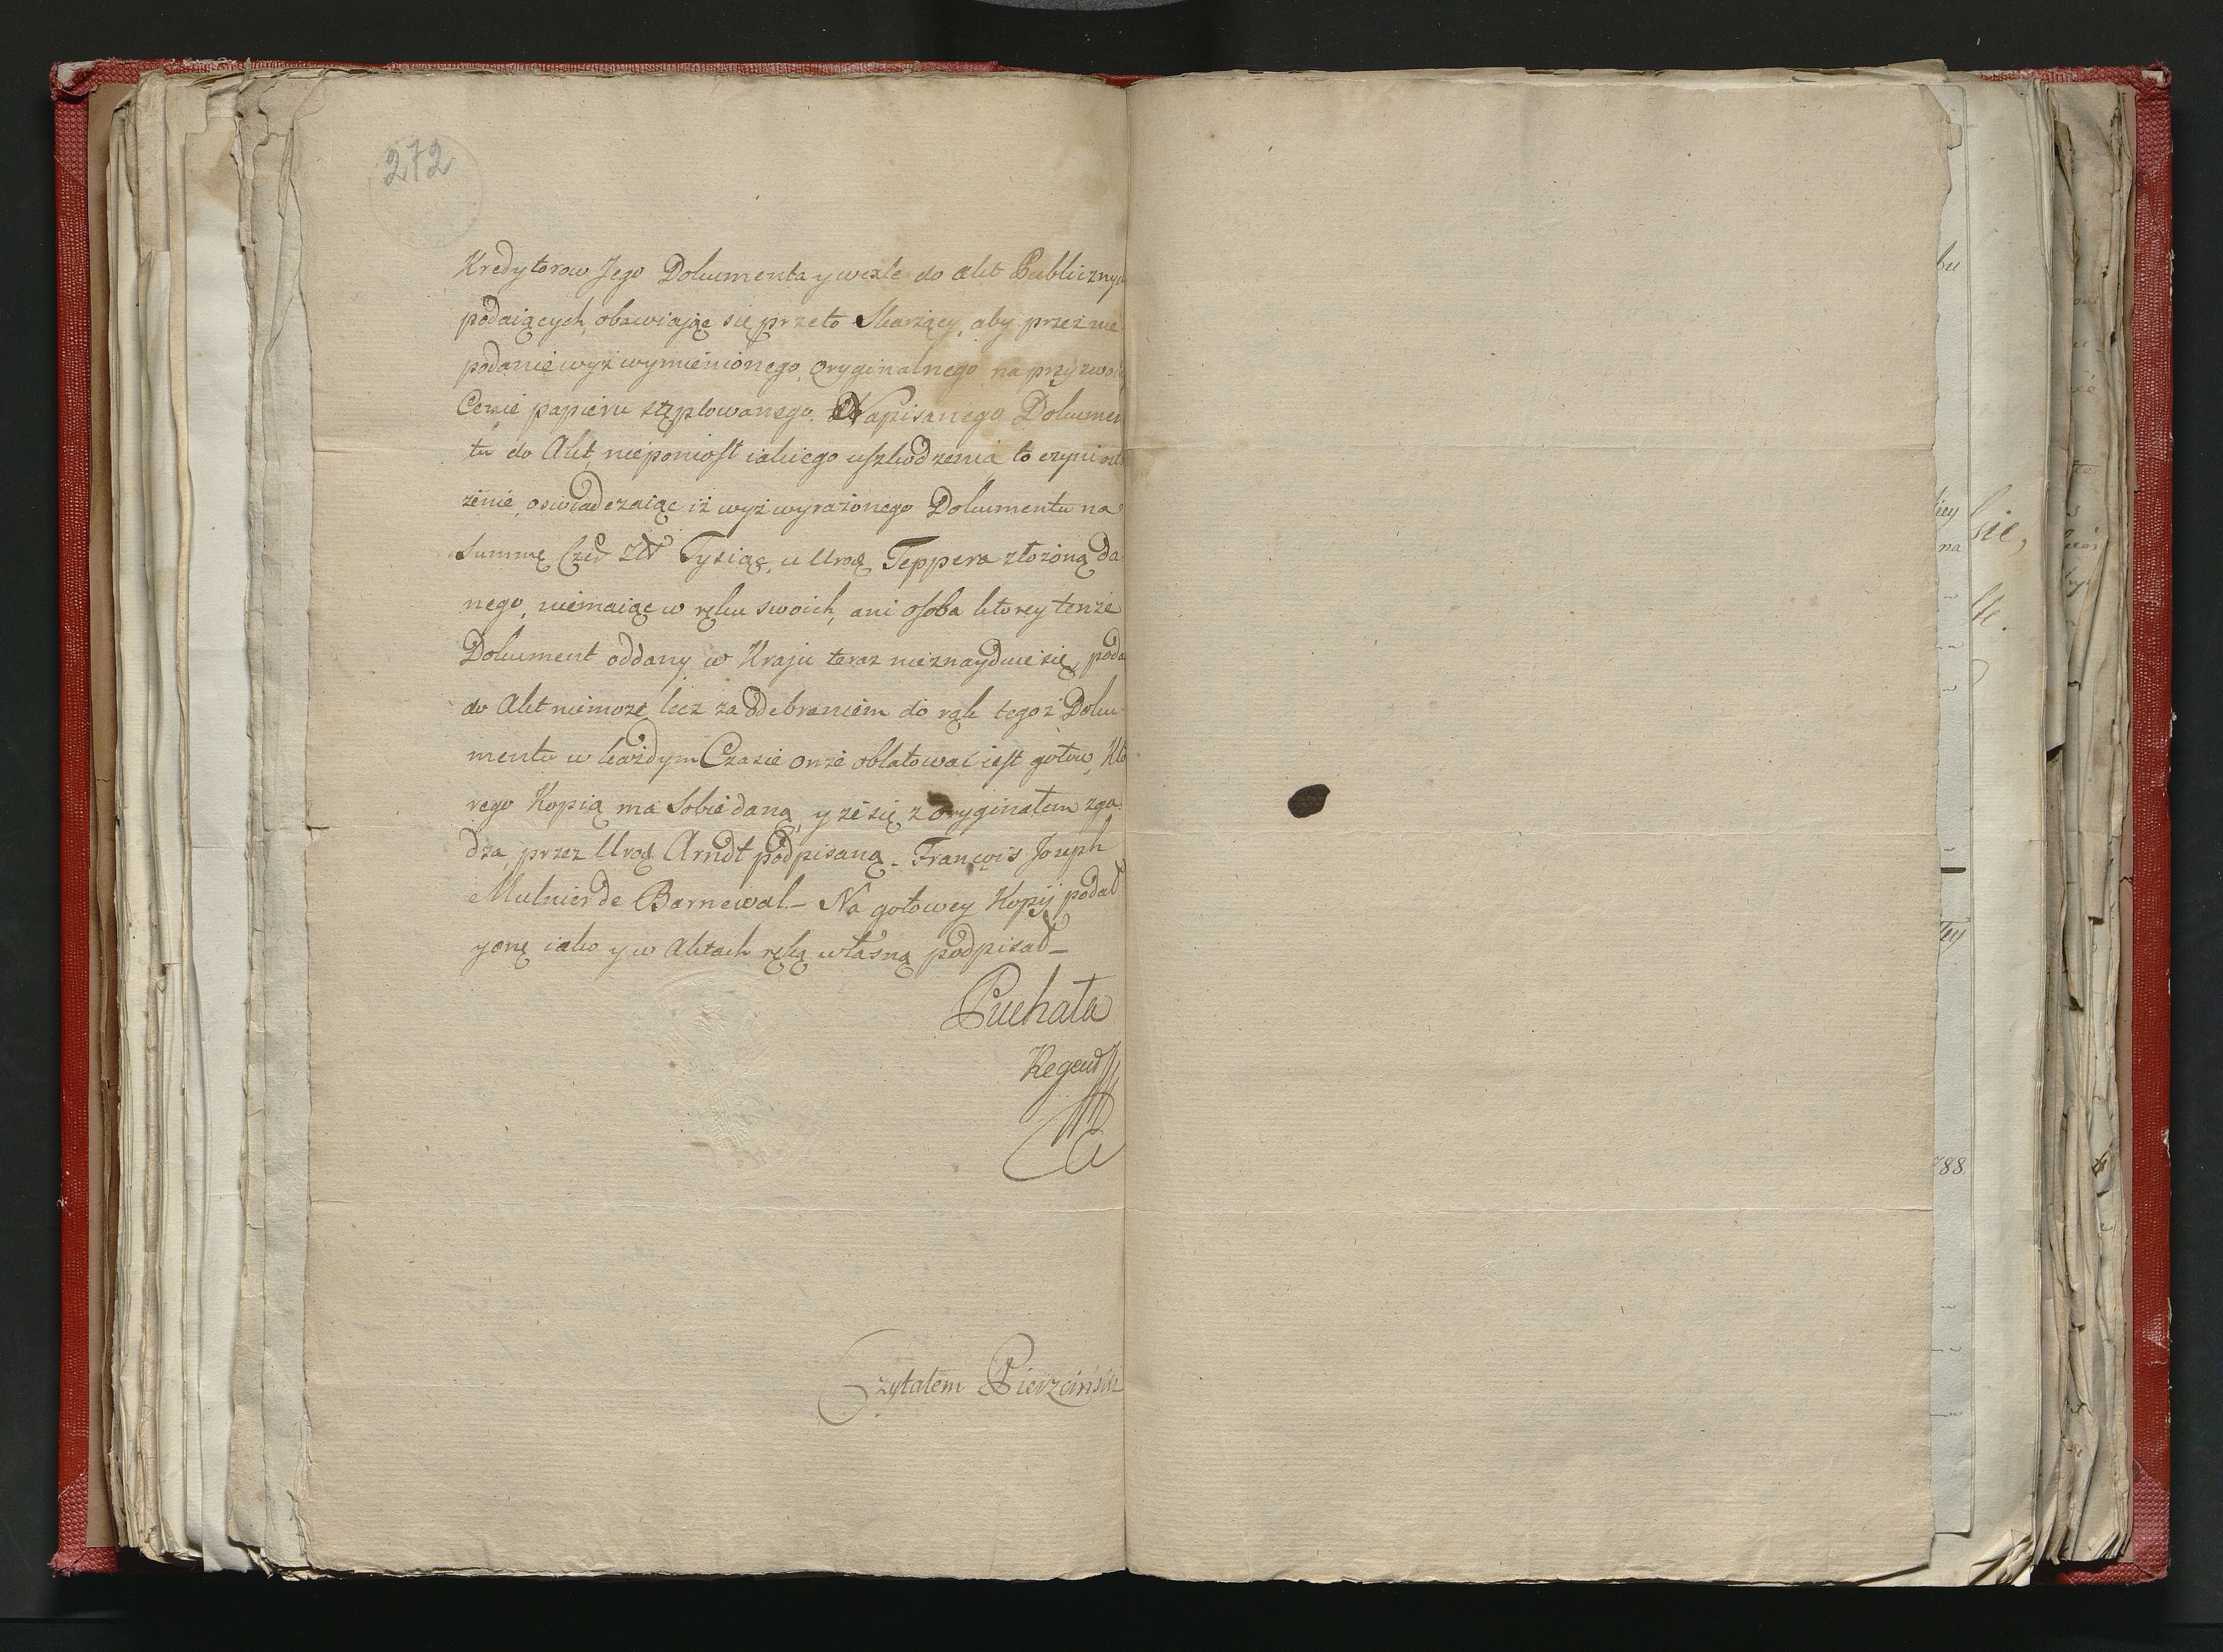 272
Kredytorow Jego Dokumenta y wexle do akt Publicznych
podaiących, obawiaiąc się przeto Skarżący, aby przez nie
podanie wyż wymienionego, oryginalnego na przyzwoi
Cenie papieru stęplowanego Napisanego Dokumen
tu do Akt, nieponiosł iakiego uszkodzenia to czyni ostr
żenie, oswiadczaiąc iż wyż wyrażonego Dokumentu na
Summę Czer Złł Tysiąc, u Urod Teppera złożoną da
nego, niemaiąc w ręku swoich, ani osoba ktorey tenże
Dokument oddany w Kraju teraz nieznayduie się, poda
do Akt niemoże, lecz za odebraniem do rąk tegoż Doku
mentu w każdym Czasie onże oblatować iest gotow, Kto
rego Kopią ma Sobie daną, y że się z oryginałem zga
dza, przez Urod Arndt podpisaną – François Joseph
Mulnier de Barnewal – Na gotowey Kopij podał
y onę iako y w Aktach ręką własną podpisał –
Puchała
Regent
Czytałem Pierzcinski
bu
kiey
na
sie,
788